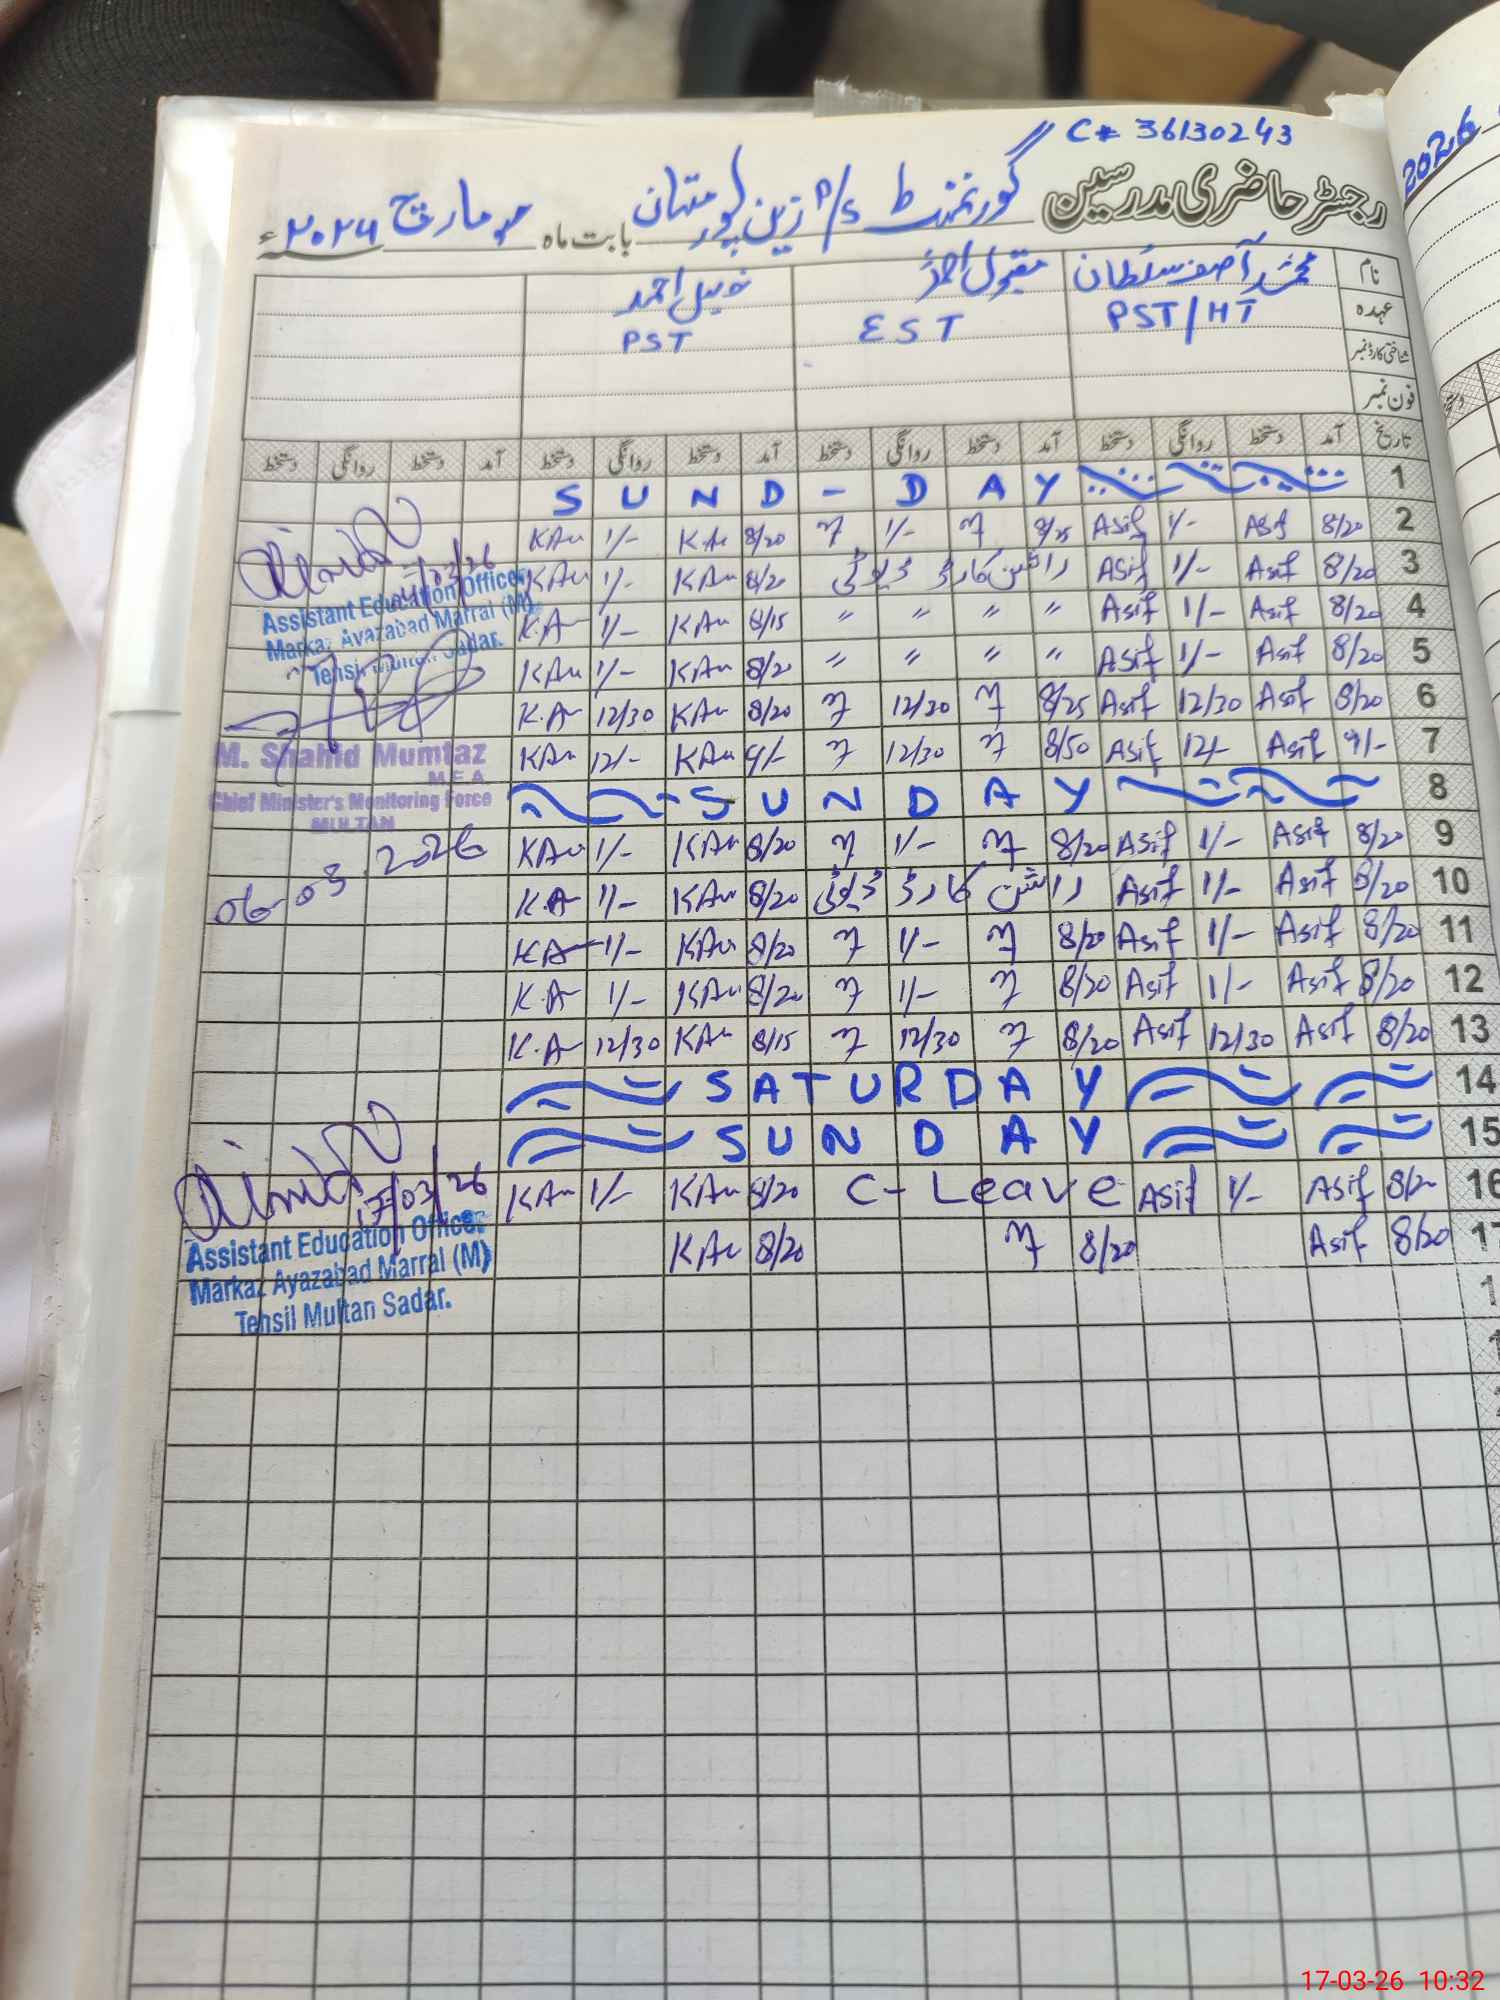 C# 36130243
رجسٹر حاضری مدرسین گورنمنٹ P/S زین پور ملتان بابت ماہ مارچ ۲۰۲۶ء
2026
نام محمد آصف سلطان مقبول احمد نوبیل احمد
عہدہ PST/HT EST PST
شناختی کارڈ نمبر
فون نمبر
تاریخ آمد دستخط روانگی دستخط آمد دستخط روانگی دستخط آمد دستخط روانگی دستخط آمد دستخط روانگی دستخط
1 SUND-DAY
2 8/20 Asif 1/- Asif 8/25 1/- 8/20 KAu 1/- KAu
3 8/20 Asif 1/- Asif راشن کارڈ ڈیوٹی 8/20 KAu 1/- KAu
4 8/20 Asif 1/- Asif " " " " 8/15 KAu 1/- K.A
5 8/20 Asif 1/- Asif " " " " 8/20 KAu 1/- KAu
6 8/20 Asif 12/30 Asif 8/25 12/20 8/20 KAu 12/30 K.A
7 9/- Asif 12/- Asif 8/50 12/30 9/- KAu 12/- KAu
8 SUNDAY
9 8/20 Asif 1/- Asif 8/20 1/- 8/20 KAu 1/- KAu
10 8/20 Asif 1/- Asif راشن کارڈ ڈیوٹی 8/20 KAu 1/- K.A
11 8/20 Asif 1/- Asif 8/20 1/- 8/20 KAu 1/- KA
12 8/20 Asif 1/- Asif 8/20 1/- 8/20 KAu 1/- K.A
13 8/20 Asif 12/30 Asif 8/20 12/30 8/15 KAu 12/30 K.A
14 SATURDAY
15 SUNDAY
16 8/20 Asif 1/- Asif C-Leave 8/20 KAu 1/- KAu
17 8/20 Asif 8/20 8/20 KAu
Assistant Education Officer
Markaz Ayazabad Marral (M)
Tehsil Multan Sadar.
M. Shahid Mumtaz
M.E.A
Chief Minister's Monitoring Force
MULTAN
06-03-2026
17/03/26
Assistant Education Officer
Markaz Ayazabad Marral (M)
Tehsil Multan Sadar.
17-03-26 10:32